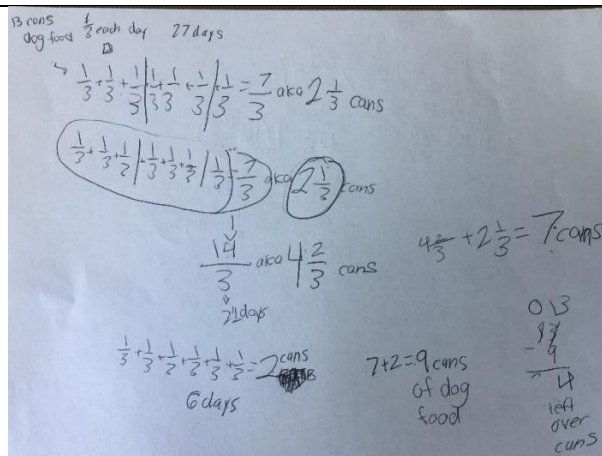 13 cans
dog food 1/3 each day 27 days
1/3 + 1/3 + 1/3 | 1/3 + 1/3 + 1/3 | + 1/3 = 7/3 aka 2 1/3 cans
1/3 + 1/3 + 1/3 | + 1/3 + 1/3 + 1/3 | 1/3 = 7/3 aka 2 1/3 cans
14/3 aka 4 2/3 cans
21 days
4 2/3 + 2 1/3 = 7 cans
1/3 + 1/3 + 1/3 + 1/3 + 1/3 + 1/3 = 2 cans
6 days
7+2=9 cans
of dog
food
0 13
13
- 9
4
left
over
cans